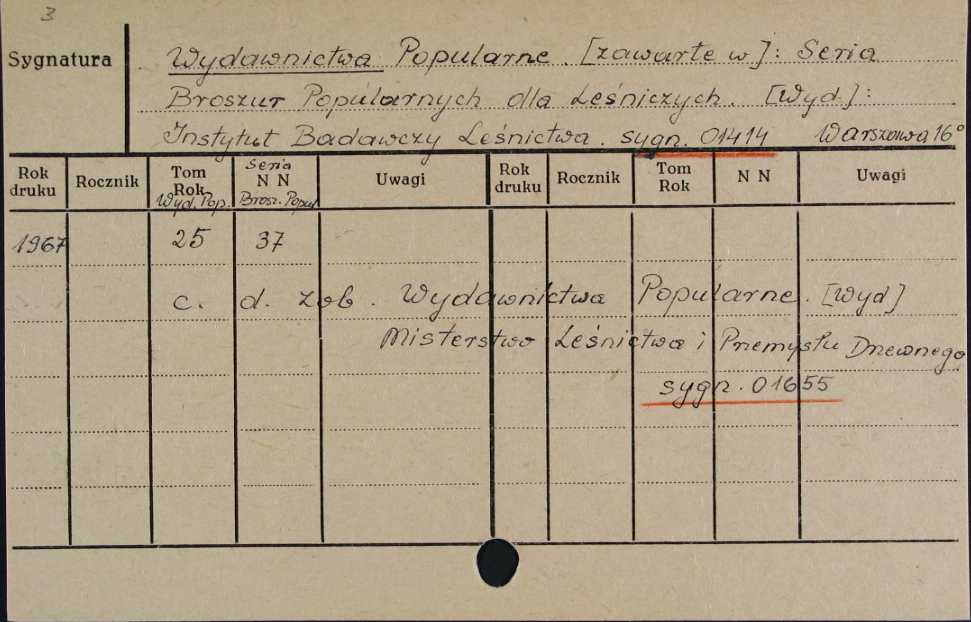 3
Sygnatura
Wydawnictwa Popularne. [zawarte w]: Seria
Broszur Popularnych dla Leśniczych. [Wyd.]:
Instytut Badawczy Leśnictwa. sygn. 01414 Warszawa 16°
Rok druku Rocznik Tom Rok Wyd. Pop. Seria N N Brosz. Popul Uwagi Rok druku Rocznik Tom Rok N N Uwagi
1967 25 37
c. d. zob. Wydawnictwa Popularne. [Wyd]
Misterstwo Leśnictwa i Przemysłu Drzewnego
sygn. 01655